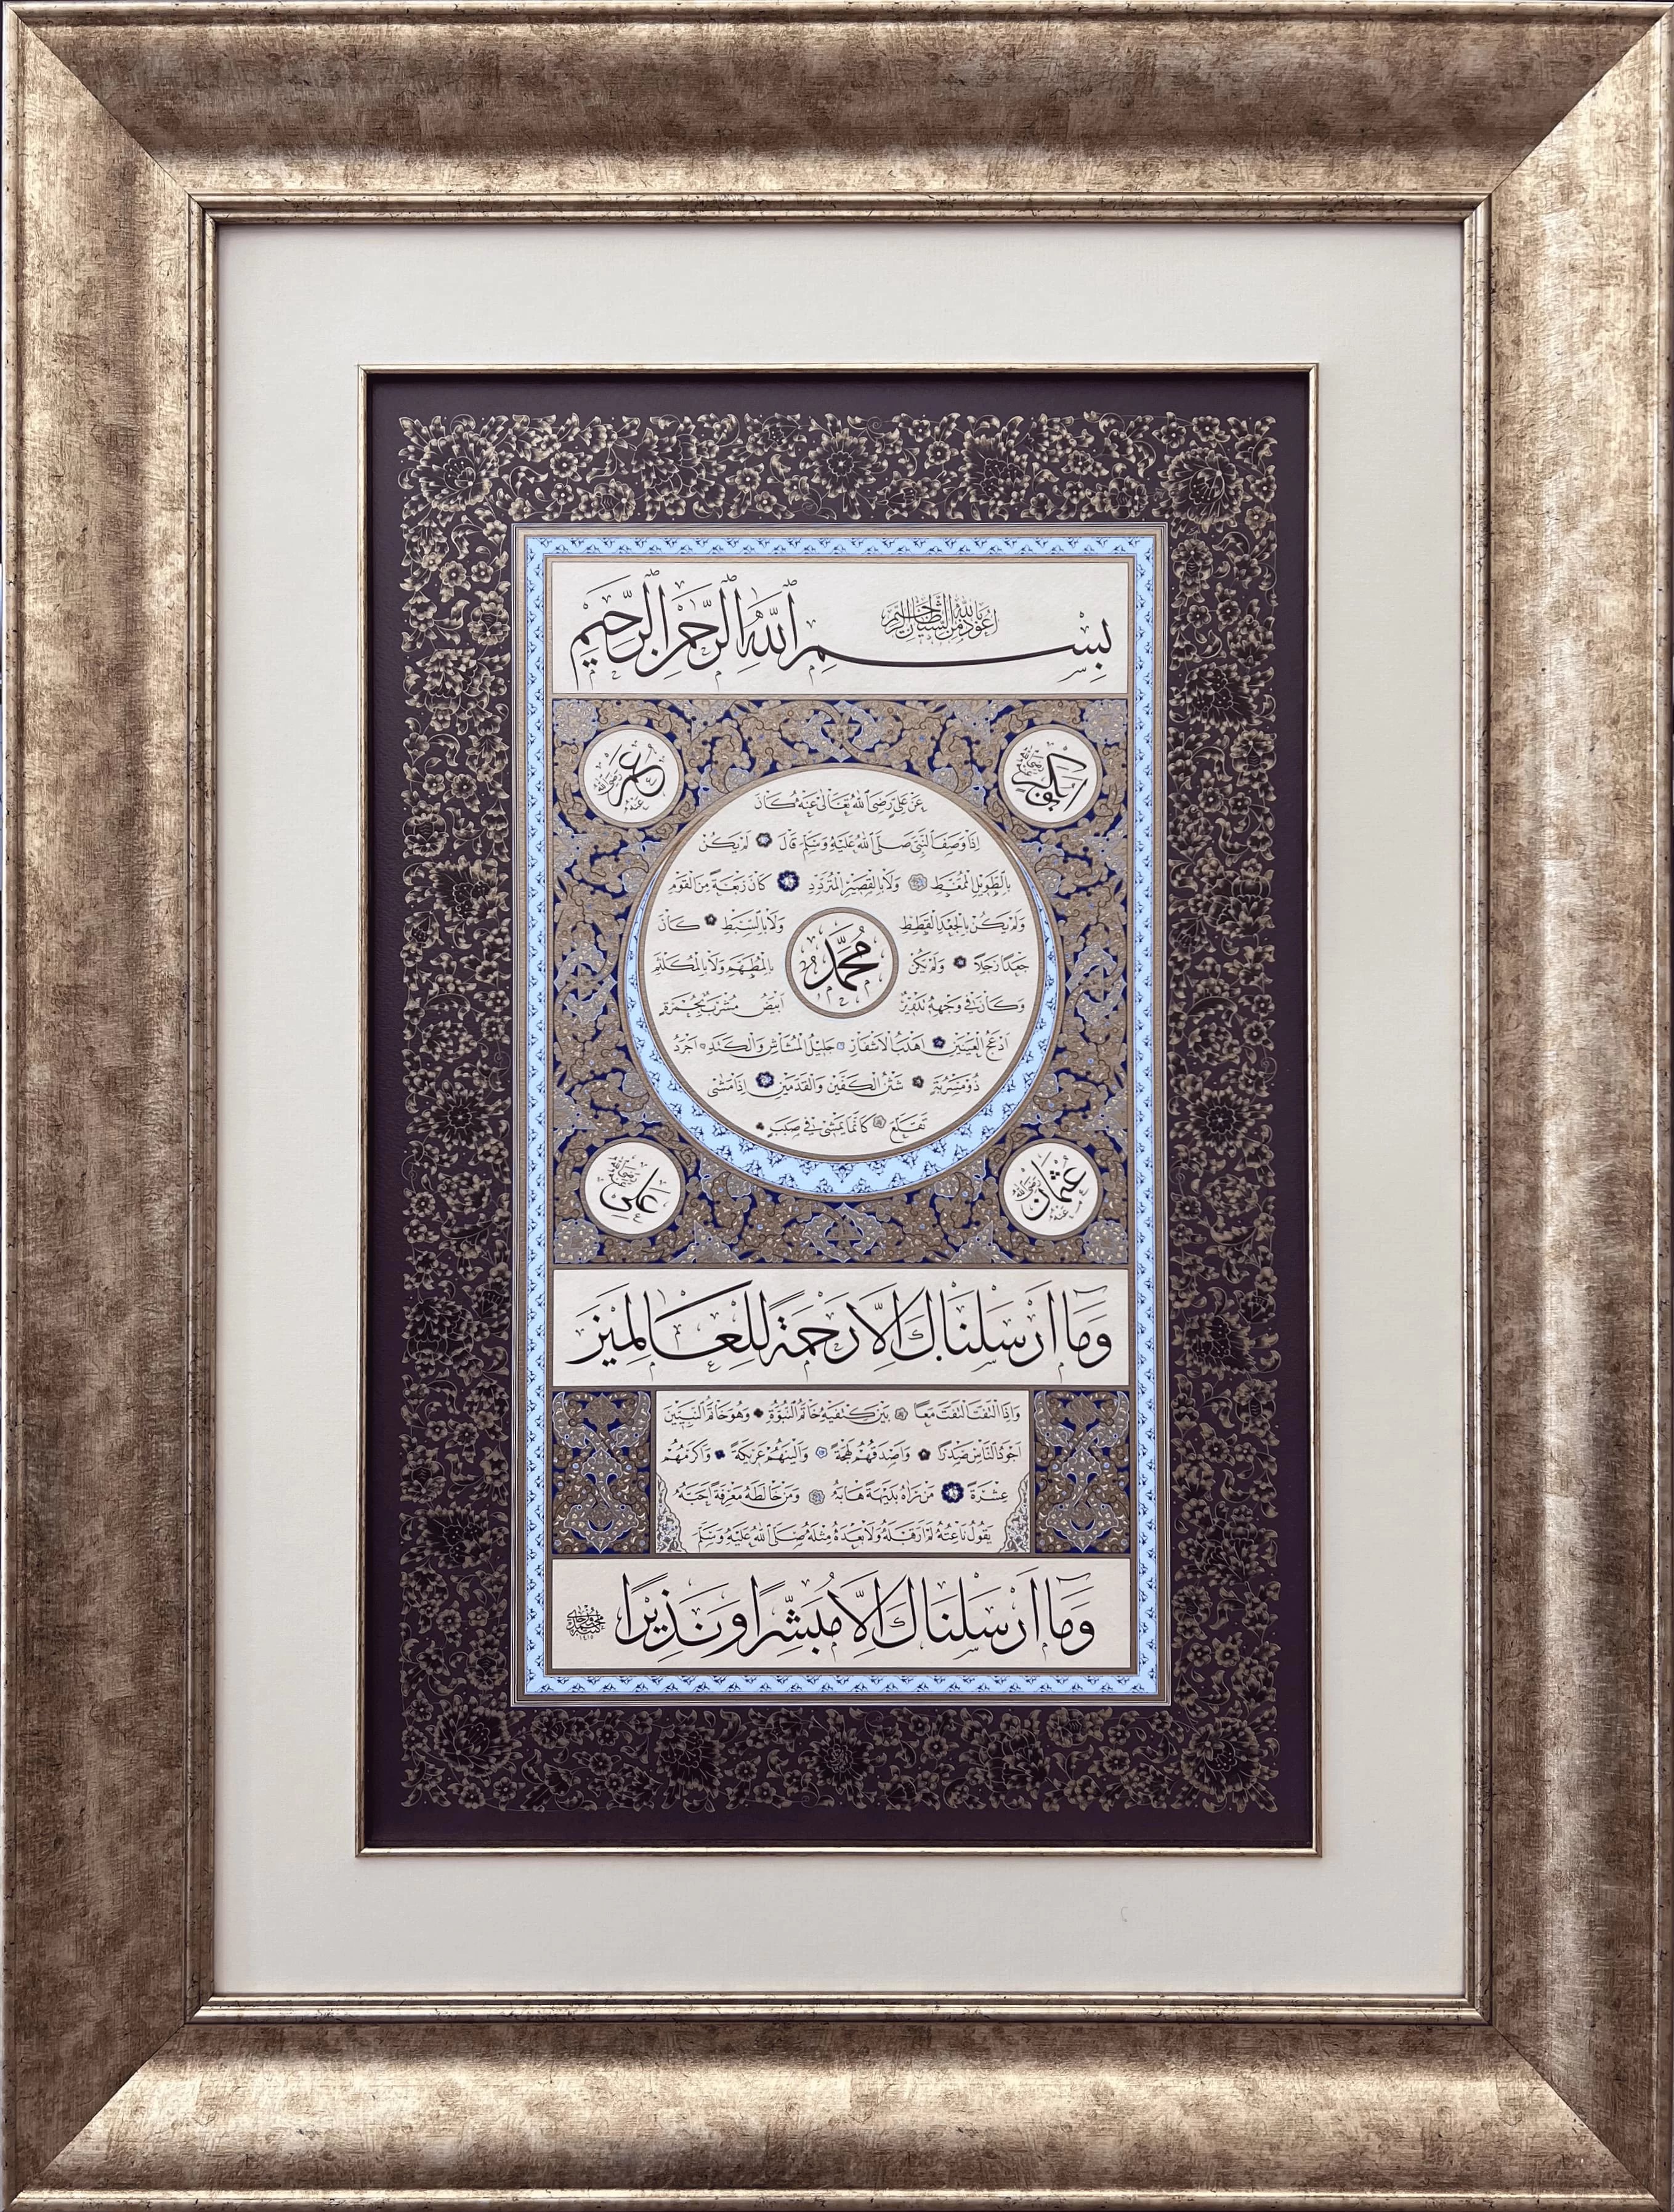 أعوذ بالله من الشيطان الرجيم
بِسْمِ اللهِ الرَّحْمٰنِ الرَّحِيمِ
ابوبكر رضي الله عنه
عمر رضي الله عنه
عَنْ عَلِيٍّ رَضِيَ اللهُ تَعَالىٰ عَنْهُ كَانَ
اِذَا وَصَفَ النَّبِيَّ صَلَّى اللهُ عَلَيْهِ وَسَلَّمَ قَالَ لَمْ يَكُنْ
بِالطَّوِيلِ الْمُمَّغِطِ وَلَا بِالْقَصِيرِ الْمُتَرَدِّدِ كَانَ رَبْعَةً مِنَ الْقَوْمِ
وَلَمْ يَكُنْ بِالْجَعْدِ الْقَطِطِ وَلَا بِالسَّبْطِ كَانَ
جَعْدًا رَجِلًا وَلَمْ يَكُنْ بِالْمُطَهَّمِ وَلَا بِالْمُكَلْثَمِ
مُحَمَّد
وَكَانَ فِي وَجْهِهِ تَدْوِيرٌ اَبْيَضُ مُشْرَبٌ بِحُمْرَةٍ
اَدْعَجُ الْعَيْنَيْنِ اَهْدَبُ الْاَشْفَارِ جَلِيلُ الْمُشَاشِ وَالْكَتَدِ اَجْرَدُ
ذُو مَسْرُبَةٍ شَثْنُ الْكَفَّيْنِ وَالْقَدَمَيْنِ اِذَا مَشٰى
تَقَلَّعَ كَاَنَّمَا يَمْشِي فِي صَبَبٍ
عثمان رضي الله عنه
علي رضي الله عنه
وَمَا اَرْسَلْنَاكَ اِلَّا رَحْمَةً لِلْعَالَمِينَ
وَاِذَا الْتَفَتَ الْتَفَتَ مَعًا بَيْنَ كَتِفَيْهِ خَاتَمُ النُّبُوَّةِ وَهُوَ خَاتَمُ النَّبِيِّينَ
اَجْوَدُ النَّاسِ صَدْرًا وَاَصْدَقُهُمْ لَهْجَةً وَاَلْيَنُهُمْ عَرِيكَةً وَاَكْرَمُهُمْ
عِشْرَةً مَنْ رَاٰهُ بَدِيهَةً هَابَهُ وَمَنْ خَالَطَهُ مَعْرِفَةً اَحَبَّهُ
يَقُولُ نَاعِتُهُ لَمْ اَرَ قَبْلَهُ وَلَا بَعْدَهُ مِثْلَهُ صَلَّى اللهُ عَلَيْهِ وَسَلَّمَ
وَمَا اَرْسَلْنَاكَ اِلَّا مُبَشِّرًا وَنَذِيرًا